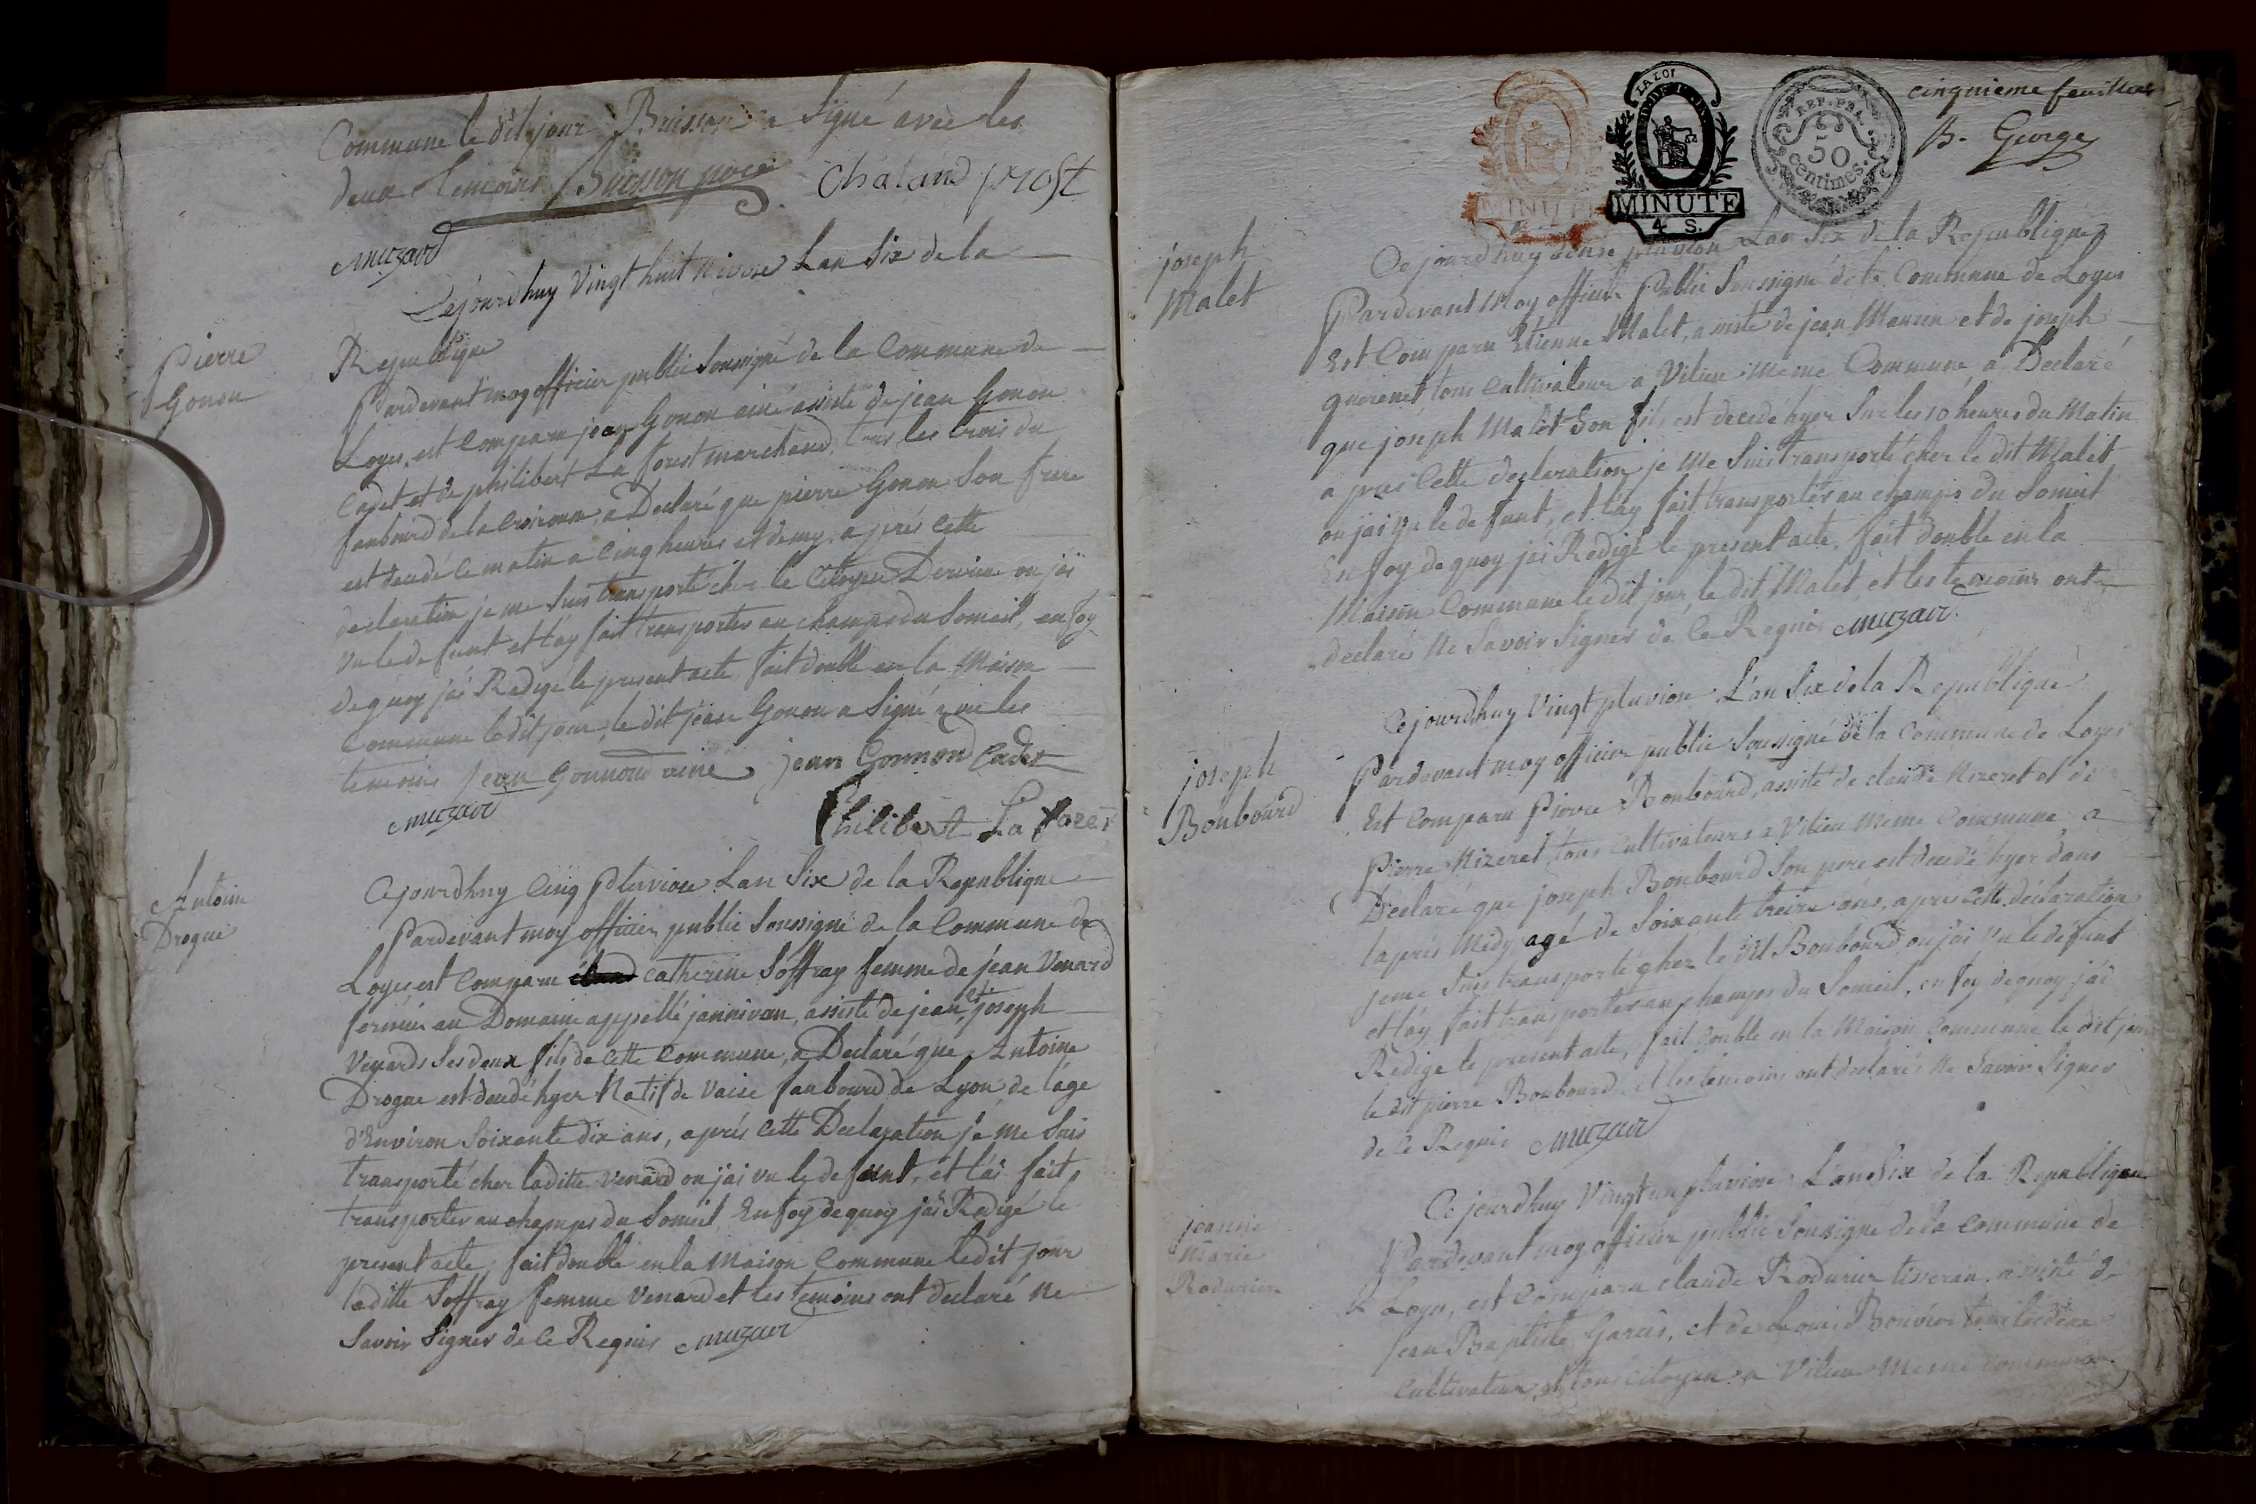 Commune le dit jour Buisson a Signé avec les
deux temoins Buisson père Chaland prost
muzard
Cejourdhuy Vingt huit Nivose Lan Six de la
Republique
Pierre
Gonon
Pardevant moy officier public Soussigné de la Commune de
Loyes, est Comparu jean Gonon ainé assisté de jean Gonon
Cadet et de philibert La forest marchand, tous les trois du
faubourd de la Croirouse, a Declaré que pierre Gonon Son frere
est decedé ce matin a Cinq heures et demy, après Cette
declaration je me Suis transporté chez le Citoyen où jai
vu le defunt et l'ay fait transporter au champs du Someil, en foy
de quoy jai Redigé le present acte fait double en la Maison
Commune le dit jour, le dit jean Gonon a Signé avec les
temoins jean Gonnond ainé jean Gonnond Cadet
muzard
Philibert La forest
Antoine
Drogue
Cejourdhuy Cinq Pluviose Lan Six de la Republique
Pardevant moy officier public Soussigné de la Commune de
Loyes est Comparue Catherine Soffray femme de jean Venard
fermier au Domaine appellé jannivon, assisté de jean et joseph
Venards Ses deux fils de Cette Commune, a Declaré que Antoine
Drogue est decedé hyer Natif de Vaise faubourd de Lyon de l'âge
d'Environ Soixante dix ans, après Cette Declaration je me Suis
transporté chez laditte Venard ou jai vu le defunt, et l'ai fait
transporter au champs du Someil, En foy de quoy jai Redigé le
present acte, fait double en la Maison Commune ledit jour
laditte Soffray femme Venard et les temoins ont declaré Ne
Savoir Signer de Ce Requis muzard
LA LOI
MINUTE
MINUTE
4 S.
REP. FRA.
50
centimes.
cinquieme feuillet
B. George
joseph
Malet
Ce jourdhuy pluviose Lan Six de la Republique
Pardevant Moy officier Public Soussigné de la Commune de Loyes
Est Comparu Etienne Malet, assisté de jean et de joseph
tous Cultivateur a Vilieu Meme Commune a Declaré
que joseph Malet Son fils est decedé hyer Sur les 10 heures du Matin
après Cette declaration je Me Suis transporté chez le dit Malet
ou jai vu le defunt, et l'ay fait transporter au champs du Someil
En foy de quoy jai Redigé le present acte, fait double en la
Maison Commune le dit jour, le dit Malet, et les temoins ont
declaré Ne Savoir Signer de Ce Requis muzard
joseph
Bonbourd
Cejourdhuy Vingt pluviose L'an Six de la Republique
Pardevant moy officier public Soussigné de la Commune de Loyes
Est Comparu Pierre Bonbourd, assisté de claude Nizeret et de
Pierre Nizeret, tous Cultivateurs a Vilieu Meme Commune, a
Declaré que joseph Bonbourd Son pere est decedé hyer dans
lapres Midy agé de Soixante treize ans, apres Cette déclaration
je me Suis transporté chez le dit Bonbourd, ou jai vu le défunt
et l'ay fait transporter au champs du Someil, en foy de quoy j'ai
Redigé le present acte, fait double en la Maison Commune le dit jour
le dit pierre Bonbourd et les temoins ont declaré Ne Savoir Signer
de Ce Requis muzard
jeanne
Marie
Rodurier
Ce jourdhuy Vingt un pluviose L'an Six de la Republique
Pardevant moy officier public Soussigné de la Commune de
Loyes, est Comparu claude Rodurier tisseran, assisté de
jean Baptiste et de Louis Bouvier tous les deux
Cultivateur et tous Citoyen a Vilieu Meme Commune